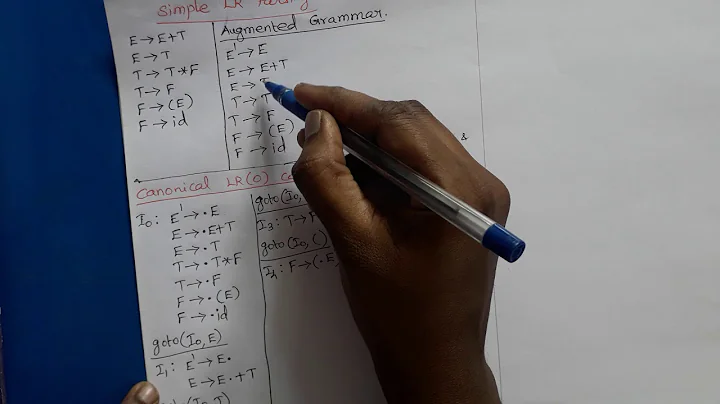 Simple LR Parsing
E→E+T
E→T
T→T*F
T→F
F→(E)
F→id
Augmented Grammar.
E'→E
E→E+T
E→T
T→T
T→F
F→(E)
F→id
&
Canonical LR(0)
I₀: E'→·E
E→·E+T
E→·T
T→·T*F
T→·F
F→·(E)
F→·id
goto(I₀,E)
I₁: E'→E·
E→E·+T
goto(I₀,T)
goto(I₀,
I₃: T→F
goto(I₀,()
I₄: F→(·E